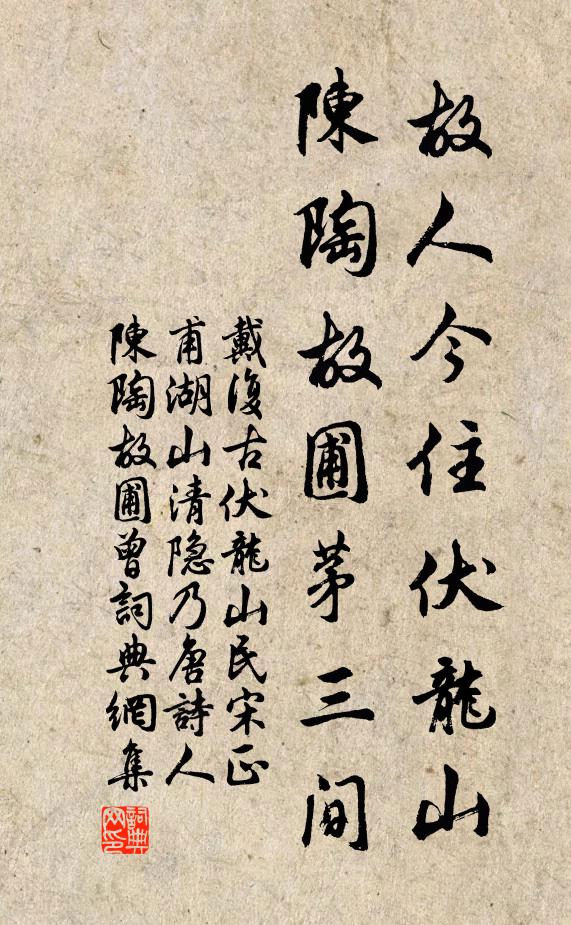 故人今住伏龍山
陳陶故圃茅三间
戴復古伏龍山民宋正
甫湖山清隐乃唐詩人
陳陶故圃曾詞典網集
詞典
网印